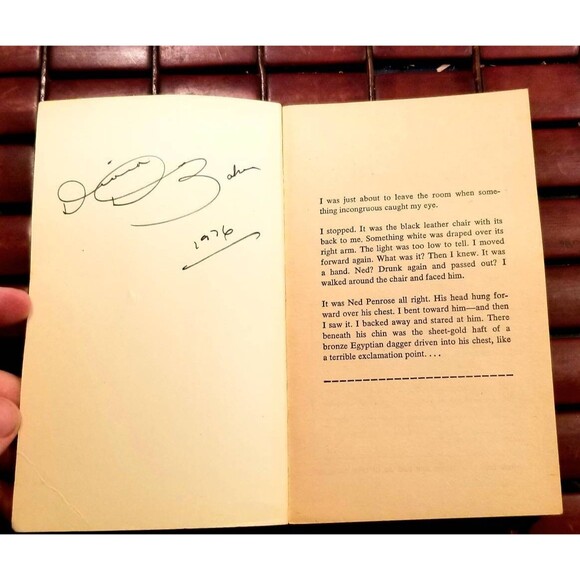 1976
I was just about to leave the room when some-
thing incongruous caught my eye.
I stopped. It was the black leather chair with its
back to me. Something white was draped over its
right arm. The light was too low to tell. I moved
forward again. What was it? Then I knew. It was
a hand. Ned? Drunk again and passed out? I
walked around the chair and faced him.
It was Ned Penrose all right. His head hung for-
ward over his chest. I bent toward him—and then
I saw it. I backed away and stared at him. There
beneath his chin was the sheet-gold haft of a
bronze Egyptian dagger driven into his chest, like
a terrible exclamation point. . . .